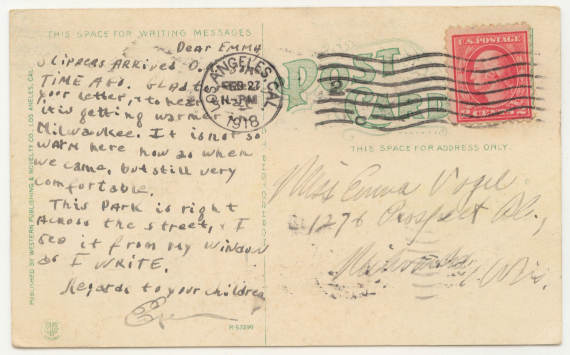 THIS SPACE FOR WRITING MESSAGES
Dear Emma
Slippers Arrived O.
Time Ago. Glad
your letter, + to hear
it is getting warmer
Milwaukee. It is not so
warm here now as when
we came, but still very
comfortable.
This Park is right
Across the street, + I
see it from my window
as I write.
Regards to your children
PUBLISHED BY WESTERN PUBLISHING & NOVELTY CO., LOS ANGELES, CAL.
R-63290
LOS ANGELES, CAL.
FEB 27
PM
1918
POST
CARD
U.S. POSTAGE
2 CENTS 2
THIS SPACE FOR ADDRESS ONLY.
Miss Emma Vogel
1276 Prospect Av.,
Milwaukee
Wis.